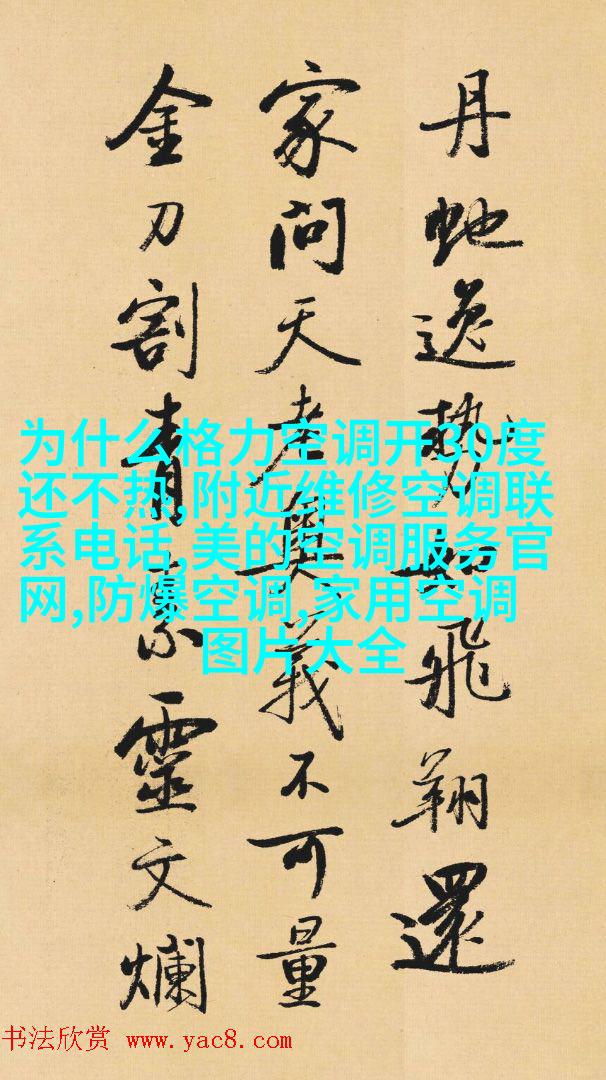 丹虵逸勢如飛翔還
家問天老奧義不可量
金刀割青素靈文爛
为什么格力空调开30度
还不热,附近维修空调联
系电话,美的空调服务官
网,防爆空调,家用空调
图片大全
书法欣赏 www.yac8.com